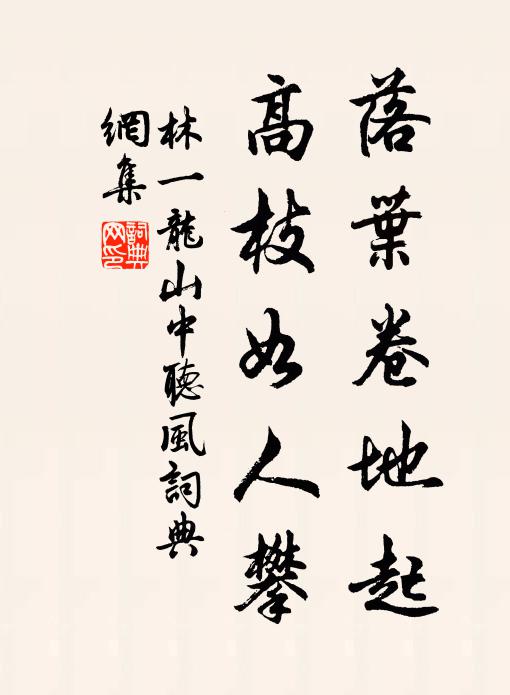 落葉卷地起
高枝如人攀
林一龍山中聽風詞典
網集
詞典網印